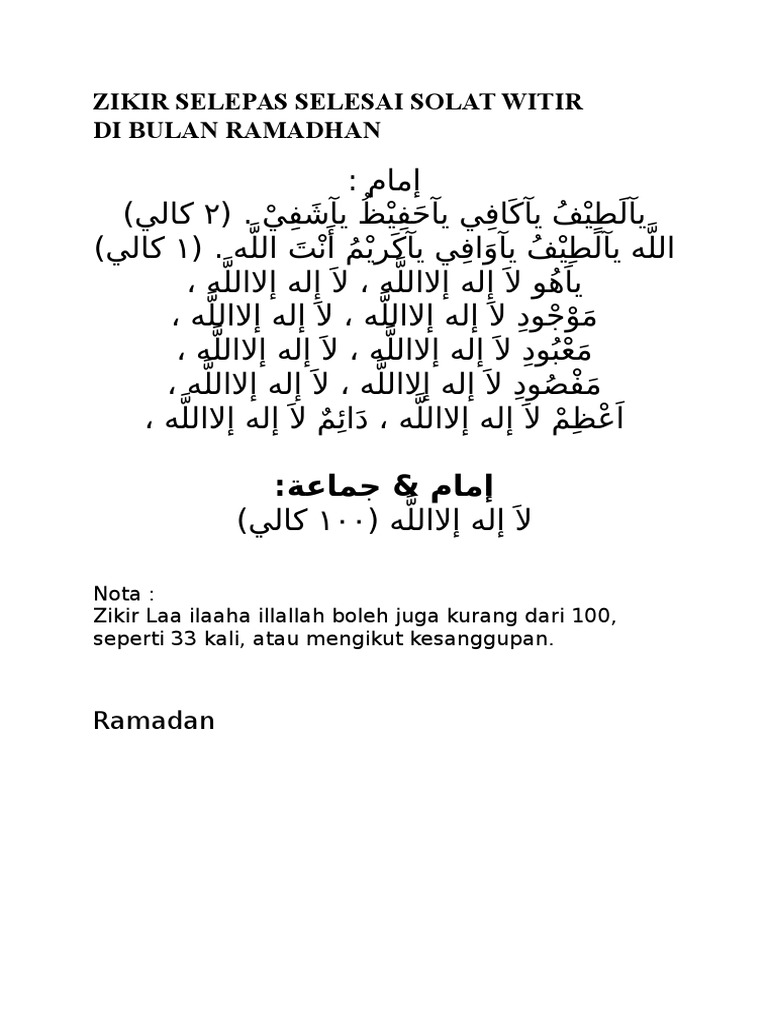 ZIKIR SELEPAS SELESAI SOLAT WITIR
DI BULAN RAMADHAN
إمام :
يآلَطِيْفُ يآكَافِي يآحَفِيْظُ يآشَفِيْ . (٢ كالي)
اللَّه يآلَطِيْفُ يآوَافِي يآكَريْمُ أَنْتَ اللَّه . (١ كالي)
ياَهُو لاَ إله إلااللَّه ، لاَ إله إلااللَّه ،
مَوْجْودِ لاَ إله إلااللَّه ، لاَ إله إلااللَّه ،
مَعْبُودِ لاَ إله إلااللَّه ، لاَ إله إلااللَّه ،
مَقْصُودِ لاَ إله إلااللَّه ، لاَ إله إلااللَّه ،
اَعْظِمْ لاَ إله إلااللَّه ، دَائِمٌ لاَ إله إلااللَّه ،
إمام & جماعة:
لاَ إله إلااللَّه (١٠٠ كالي)
Nota :
Zikir Laa ilaaha illallah boleh juga kurang dari 100,
seperti 33 kali, atau mengikut kesanggupan.
Ramadan